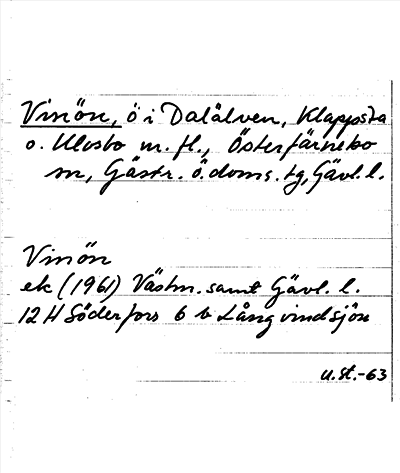 Vinön, ö i Dalälven, Klappsta
o. Ulvsbo m. fl., Österfärnebo
sn, Gästr. ö. doms. tg, Gävl. l.
Vinön
ek (1961) Västm. samt Gävl. l.
12 H Söderfors 6 b Långvindsjön
U.St.-63